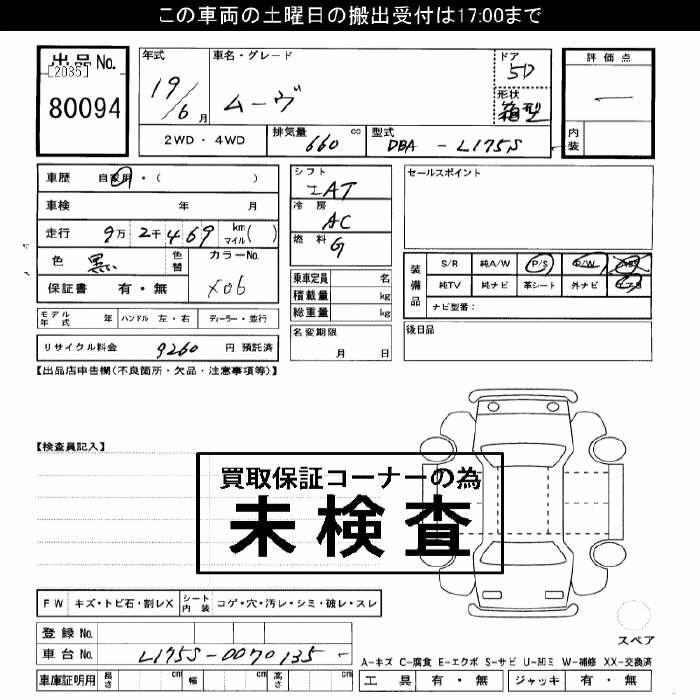 この車両の土曜日の搬出受付は17:00まで
出品No.
[2035]
80094
年式
19/6月
車名・グレード
ムーヴ
ドア
5D
形状
箱型
評価点
―
内装
2WD・4WD
排気量 660 cc
型式 DBA - L175S
車歴 自家用・( )
車検 年 月
走行 9万2千469 km マイル( )
色 黒
色替
カラーNo.
X06
保証書 有・無
シフト
IAT
冷房
AC
燃料
G
セールスポイント
装備品
S/R 純A/W P/S P/W ABS
純TV 純ナビ 革シート 外ナビ エアB
ナビ型番:
乗車定員 名
積載量 kg
総重量 kg
モデル年式 年 ハンドル 左・右 ディーラー・並行
名変期限
月 日
後日品
リサイクル料金 9260 円 預託済
【出品店申告欄(不良箇所・欠品・注意事項等)】
【検査員記入】
買取保証コーナーの為
未検査
FW キズ・トビ石・割レX
シート内装 コゲ・穴・汚レ・シミ・破レ・スレ
登録No.
車台No. L175S-0070135 -
車庫証明用 長さ cm 幅 cm 高さ cm
スペア
A-キズ C-腐食 E-エクボ S-サビ U-凹ミ W-補修 XX-交換済
工具 有・無 ジャッキ 有・無